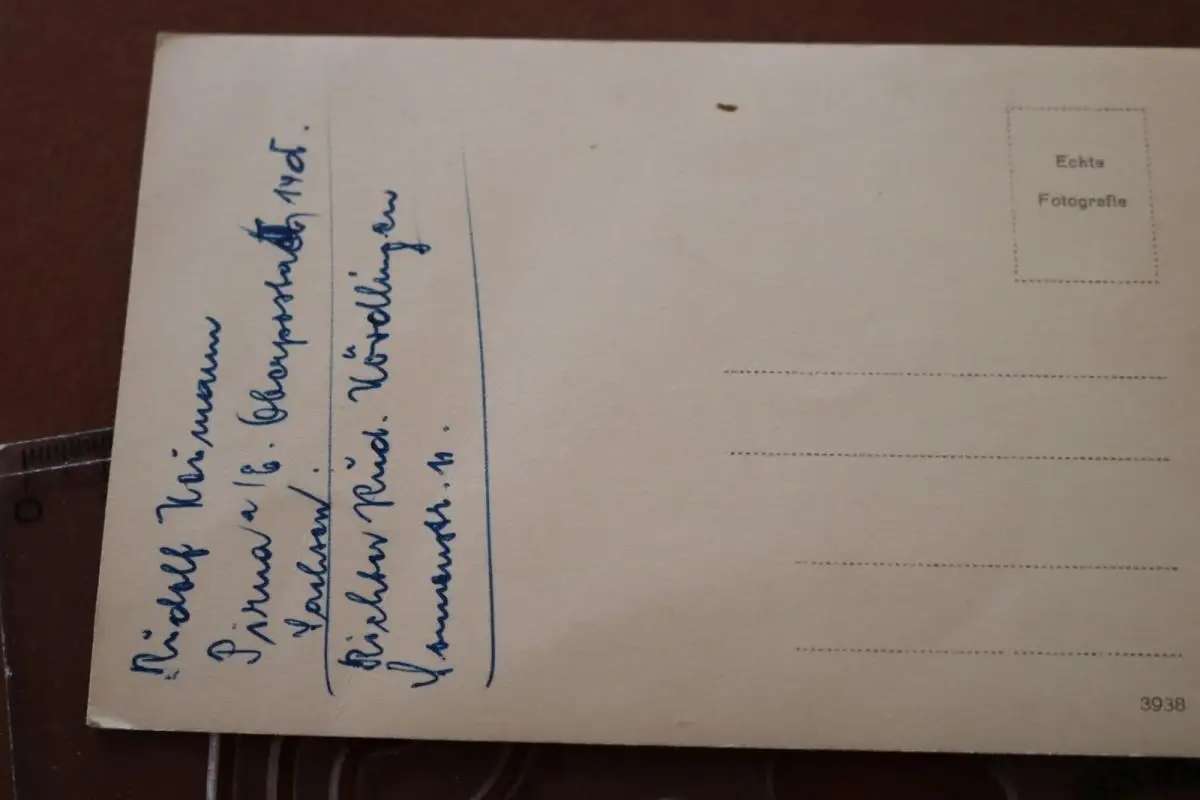 Rudolf Heimann
Pirna a/E. Oberposta 14d.
Sachsen.
Richter Rud. Nördlingen
11.
Echte
Fotografie
3938